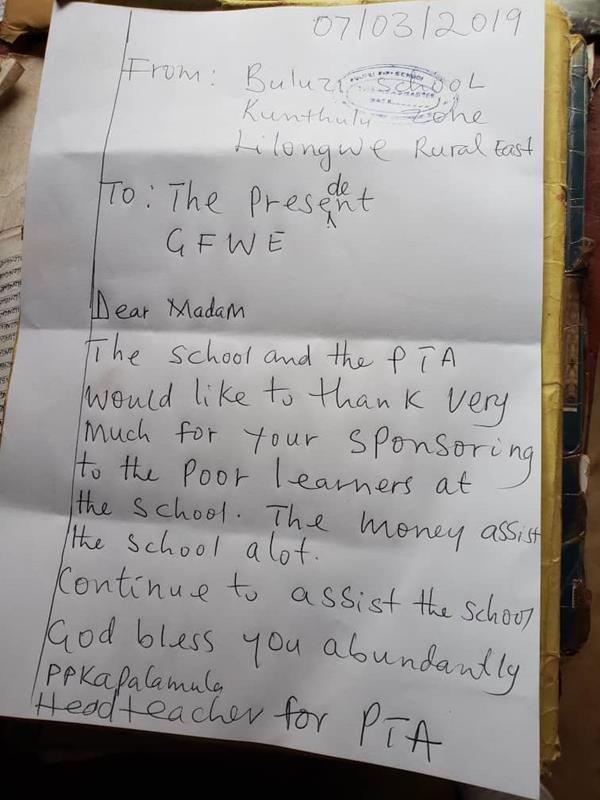 07/03/2019
From: Buluzi School
Kunthulu Zone
Lilongwe Rural East
To: The Presedent
GFWE
Dear Madam
The school and the PTA
would like to thank very
much for your sponsoring
to the poor learners at
the school. The money assist
the school alot.
Continue to assist the school
God bless you abundantly
PPKapalamula
Headteacher for PTA